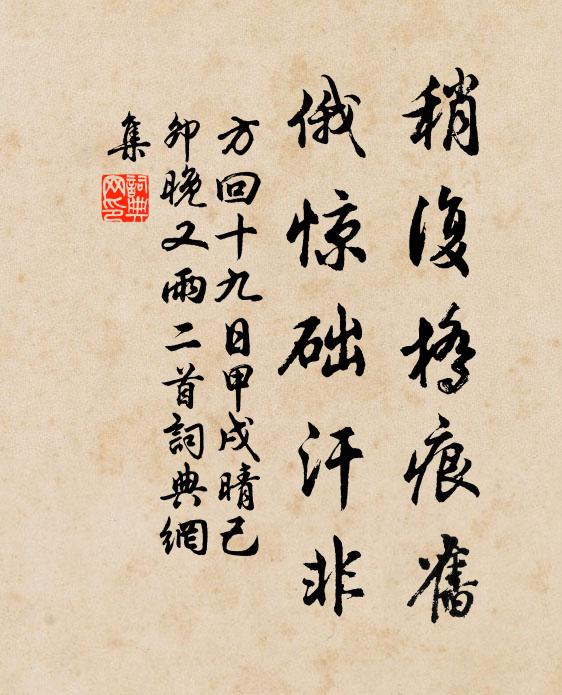 稍復橋痕舊
俄惊础汗非
方回十九日甲戌晴己
卯晚又雨二首詞典網
集
詞典网印